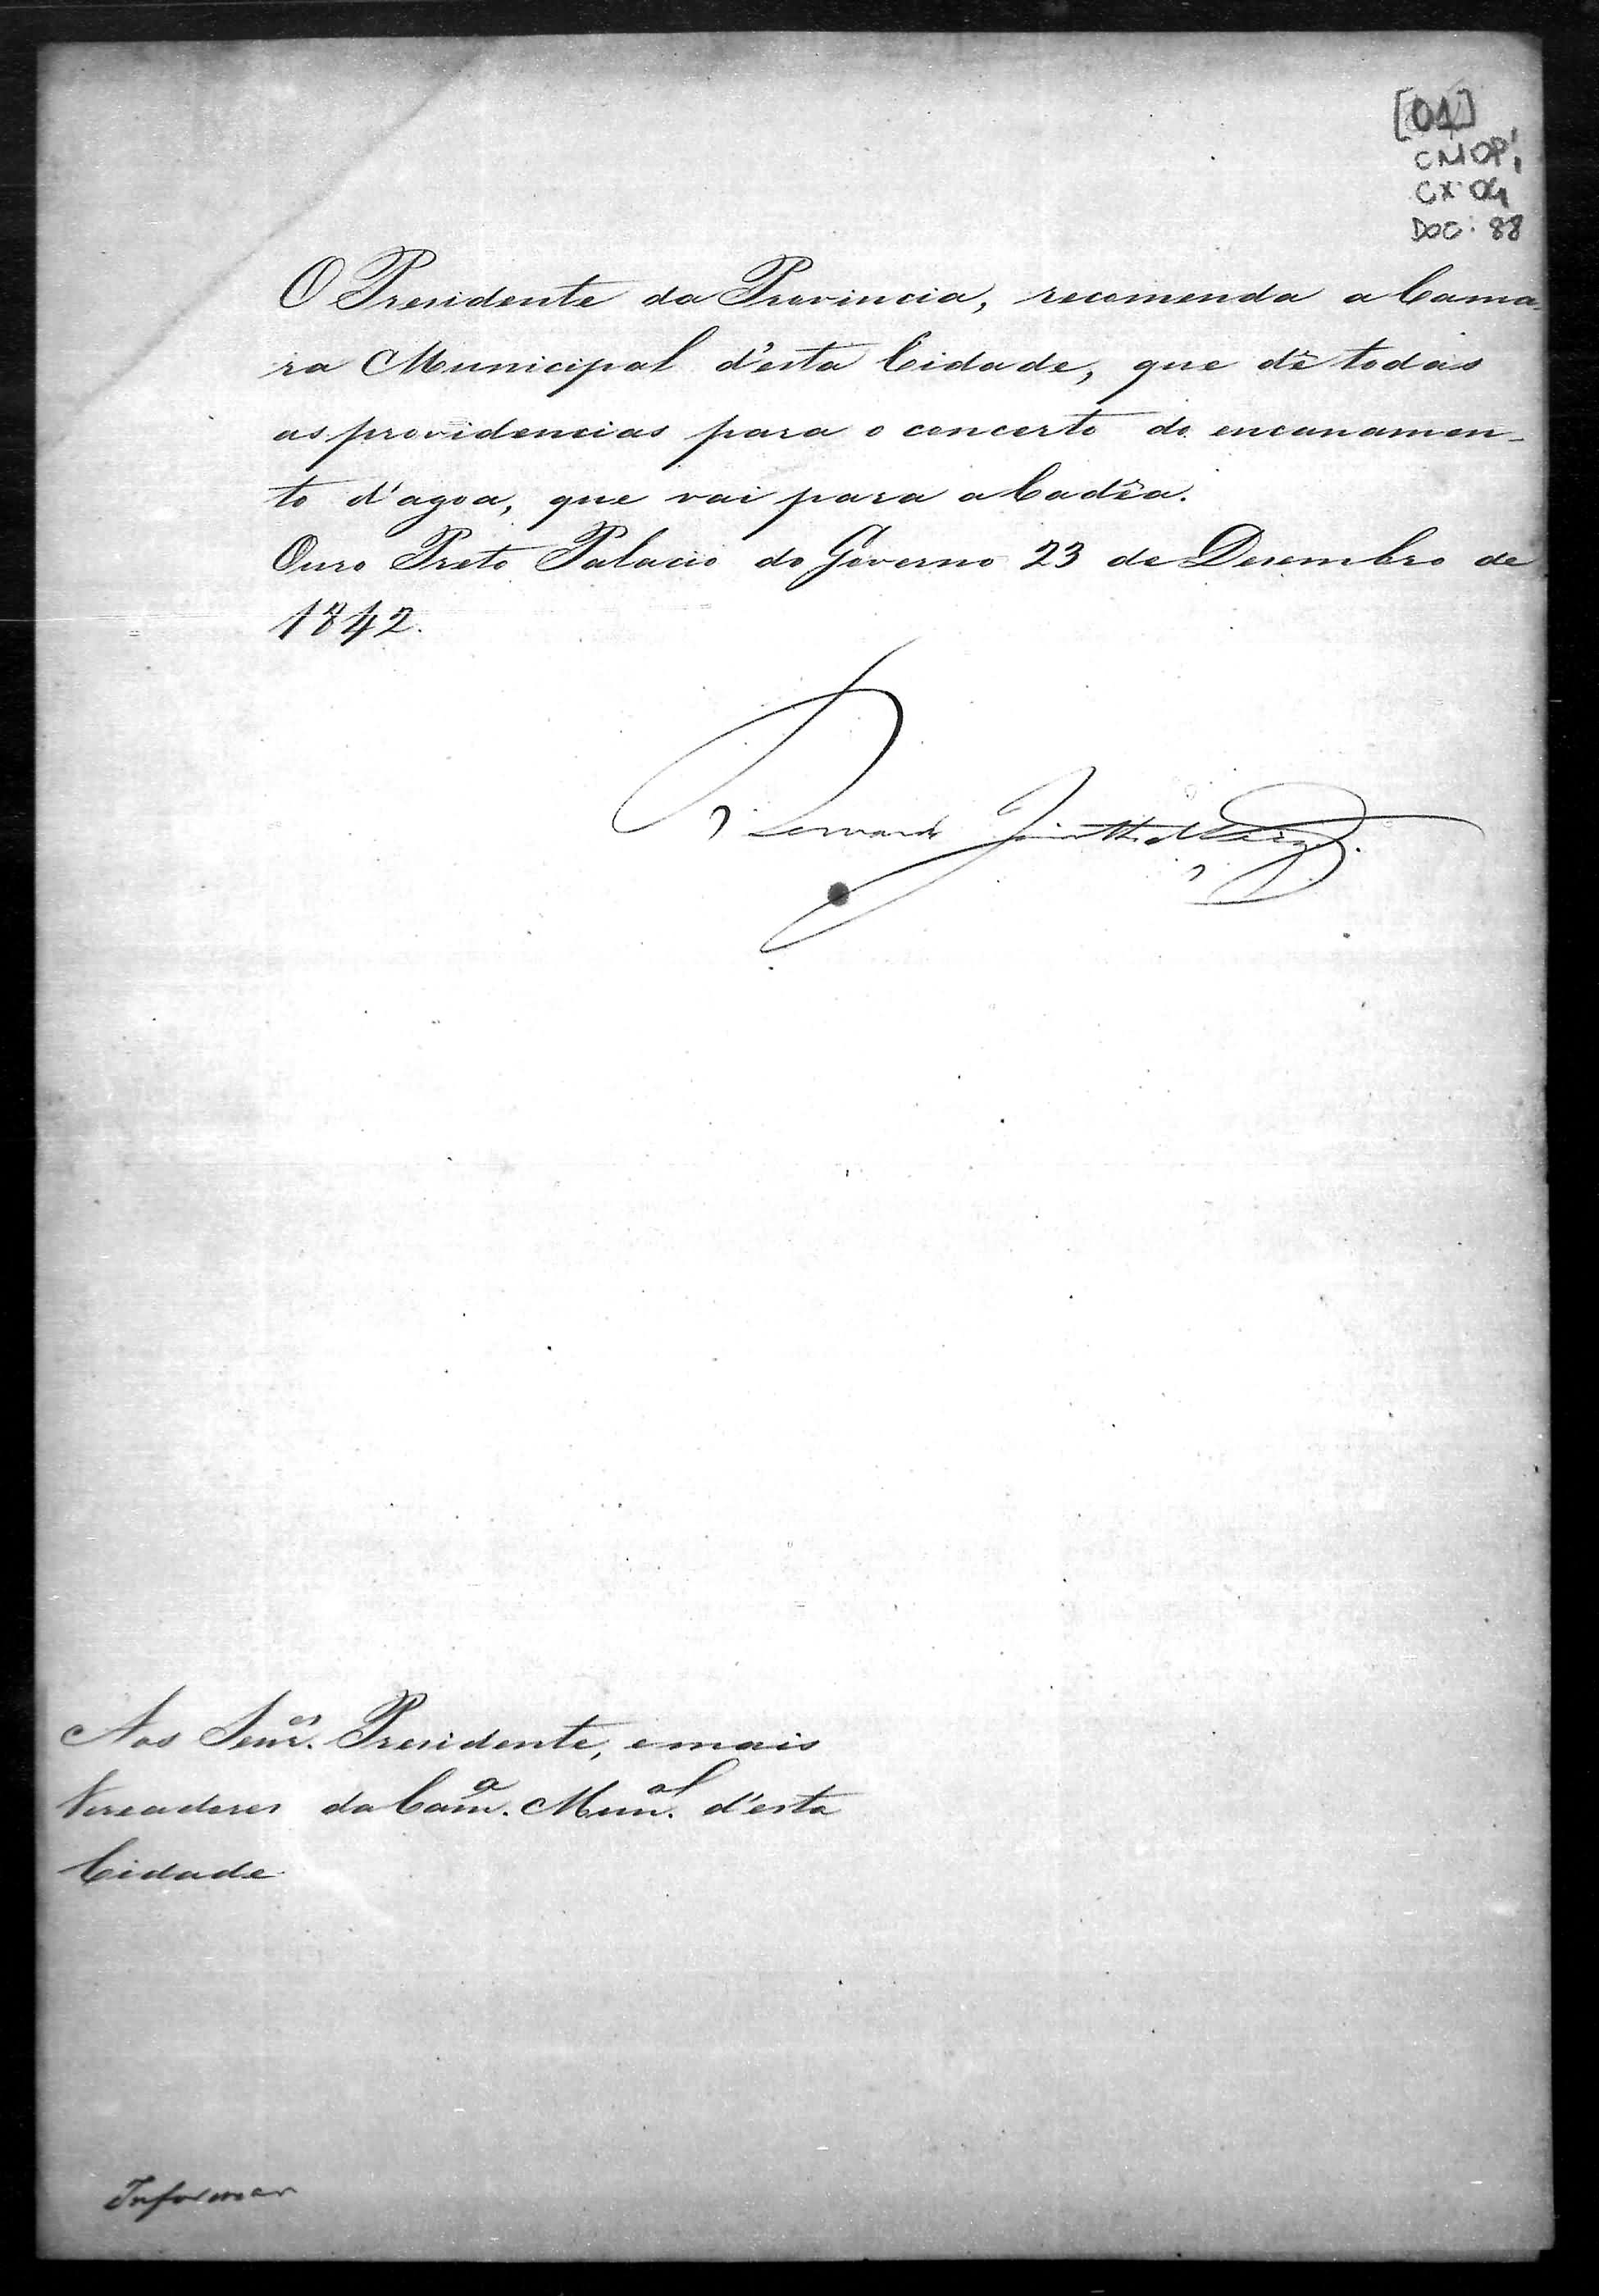 [01]
CMOP,
CX 04
DOC: 88
O Presidente da Provincia, recomenda a Cama-
ra Municipal d'esta Cidade, que dê todas
as providencias para o concerto do encanamen-
to d'agoa, que vai para a Cadêa.
Ouro Preto Palacio do Governo 23 de Desembro de
1842.
Bernardo Jacintho da Veiga.
Aos Senr.es Presidente, e mais
Vereadores da Cam.a Mun.al d'esta
Cidade
Informar